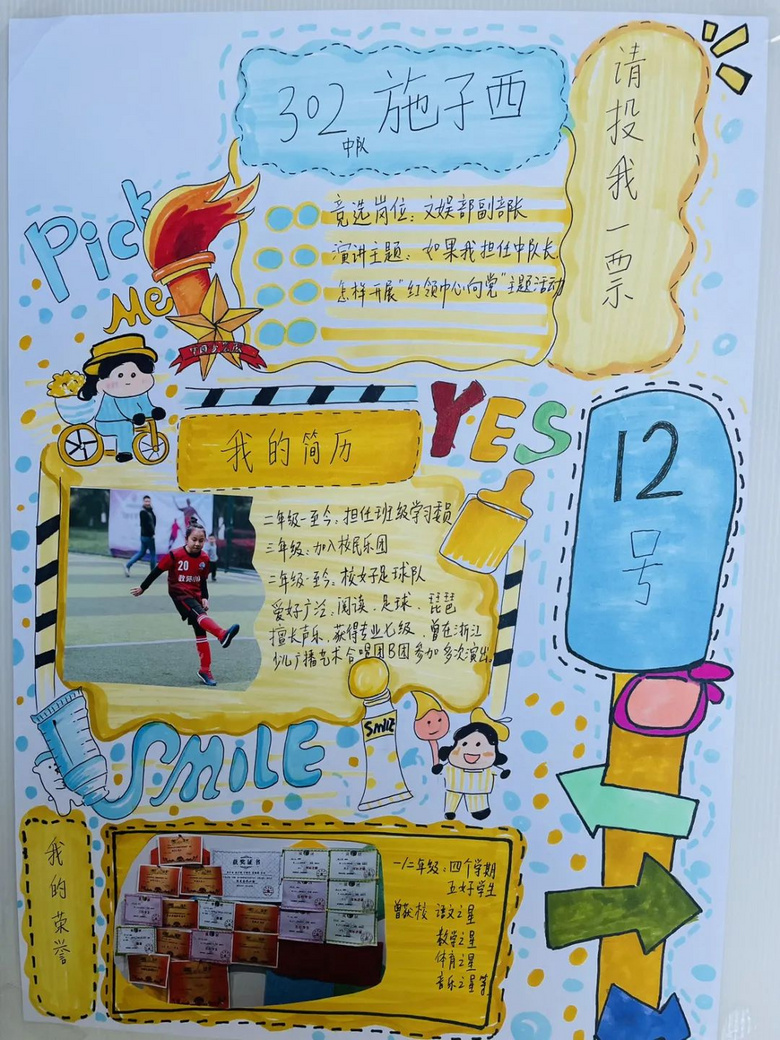 302 施子西
中队
请投我一票
Pick
Me
竞选岗位：文娱部副部长
演讲主题：如果我担任中队长
怎样开展“红领巾心向党”主题活动
YES
12
号
我的简历
20
二年级-至今：担任班级学习委员
三年级：加入校民乐团
二年级-至今：校女足球队
爱好广泛：阅读、足球、琵琶
擅长声乐、获得专业七级、曾在浙江
少儿广播艺术合唱团B团参加多次演出。
SMILE
SMILE
我的荣誉
获奖证书
一/二年级：四个学期
五好学生
曾获校 语文之星
数学之星
体育之星
音乐之星等